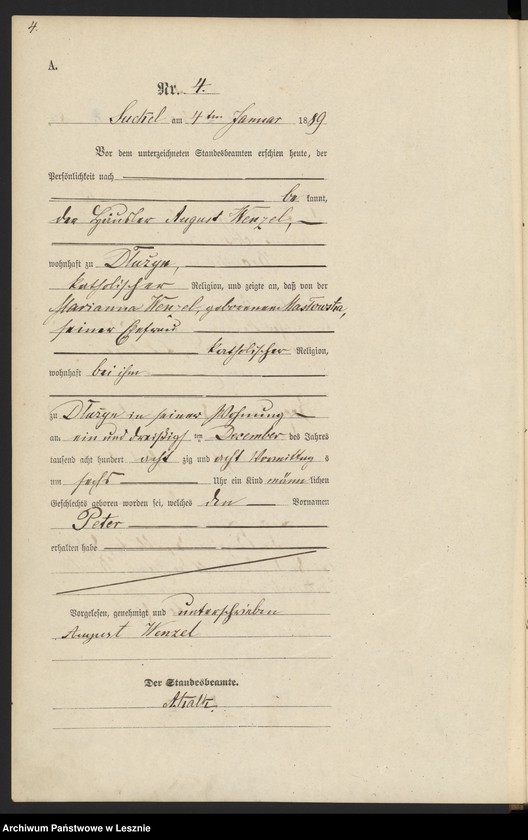 4.
A.
Nr. 4.
Suckel am 4ten Januar 1889
Vor dem unterzeichneten Standesbeamten erschien heute, der
Persönlichkeit nach
be kannt,
der Häusler August Wenzel,
wohnhaft zu Dłużyn,
katholischer Religion, und zeigte an, daß von der
Marianna Wenzel, geborenen Masłowska,
seiner Ehefrau
katholischer Religion,
wohnhaft bei ihm
zu Dłużyn in seiner Wohnung
am ein und dreißigsten December des Jahres
tausend acht hundert acht zig und acht Vormittag s
um sechs Uhr ein Kind männ lichen
Geschlechts geboren worden sei, welches den Vornamen
Peter
erhalten habe
Vorgelesen, genehmigt und unterschrieben
August Wenzel
Der Standesbeamte.
Archiwum Państwowe w Lesznie